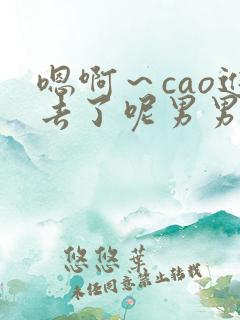 嗯啊～cao进
去了呢男男
悠悠葉
未经同意禁止转载